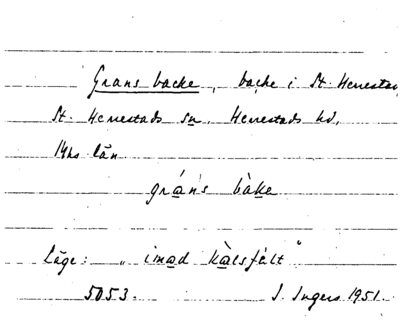 Grans backe, backe i St. Herrestad,
St. Herrestads sn. Herrestads hd,
Mhs län.
grán's bàke
Läge: "imod kàlsfált"
5053. I. Ingers 1951.